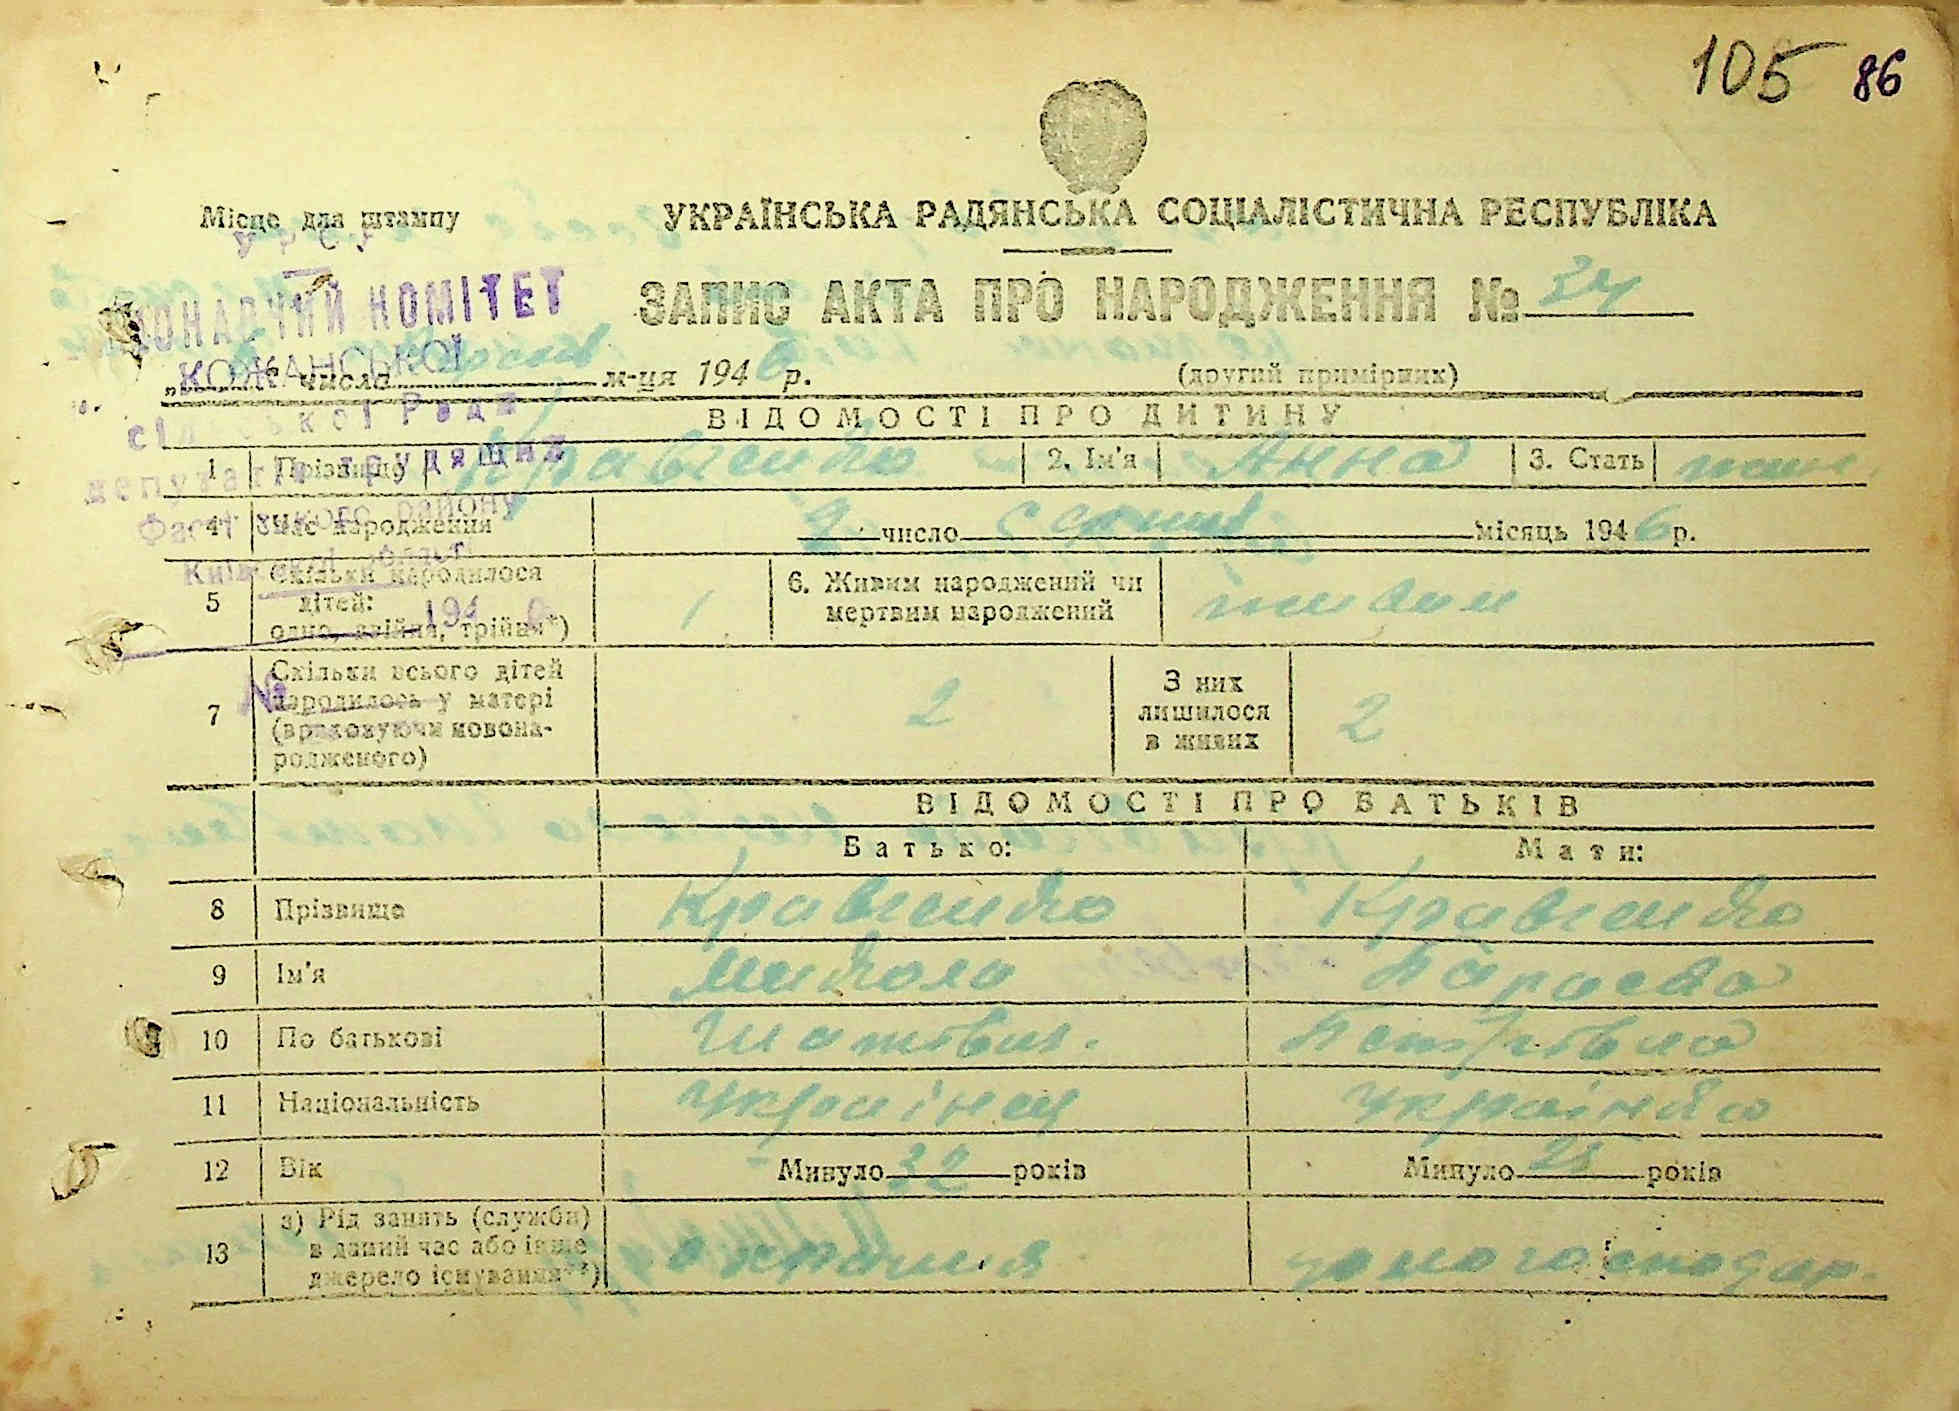 105 86
Місце для штампу
УКРАЇНСЬКА РАДЯНСЬКА СОЦІАЛІСТИЧНА РЕСПУБЛІКА
УРСР
КОНАВЧИЙ КОМІТЕТ
ЗАПИС АКТА ПРО НАРОДЖЕННЯ № 34
КОЖАНСЬКОЇ
число м-ця 1946 р. (другий примірник)
сільської Ради
ВІДОМОСТІ ПРО ДИТИНУ
депутатів трудящих
1 Прізвище Кравченко 2. Ім'я Анна 3. Стать жін.
Фастівського району
4 Час народження 2 число серпня місяць 1946 р.
Київської області
5 Скільки народилося дітей: одно, двійня, трійня*) 1 6. Живим народжений чи мертвим народжений живим
194 р.
№
7 Скільки всього дітей народилось у матері (враховуючи новонародженого) 2 З них лишилося в живих 2
ВІДОМОСТІ ПРО БАТЬКІВ
Батько: Мати:
8 Прізвище Кравченко Кравченко
9 Ім'я Микола Параска
10 По батькові Гнатович. Петровна
11 Національність українец українка
12 Вік Минуло 32 років Минуло 28 років
13 а) Рід занять (служби) в даний час або інше джерело існування**) охрання домогосподар.